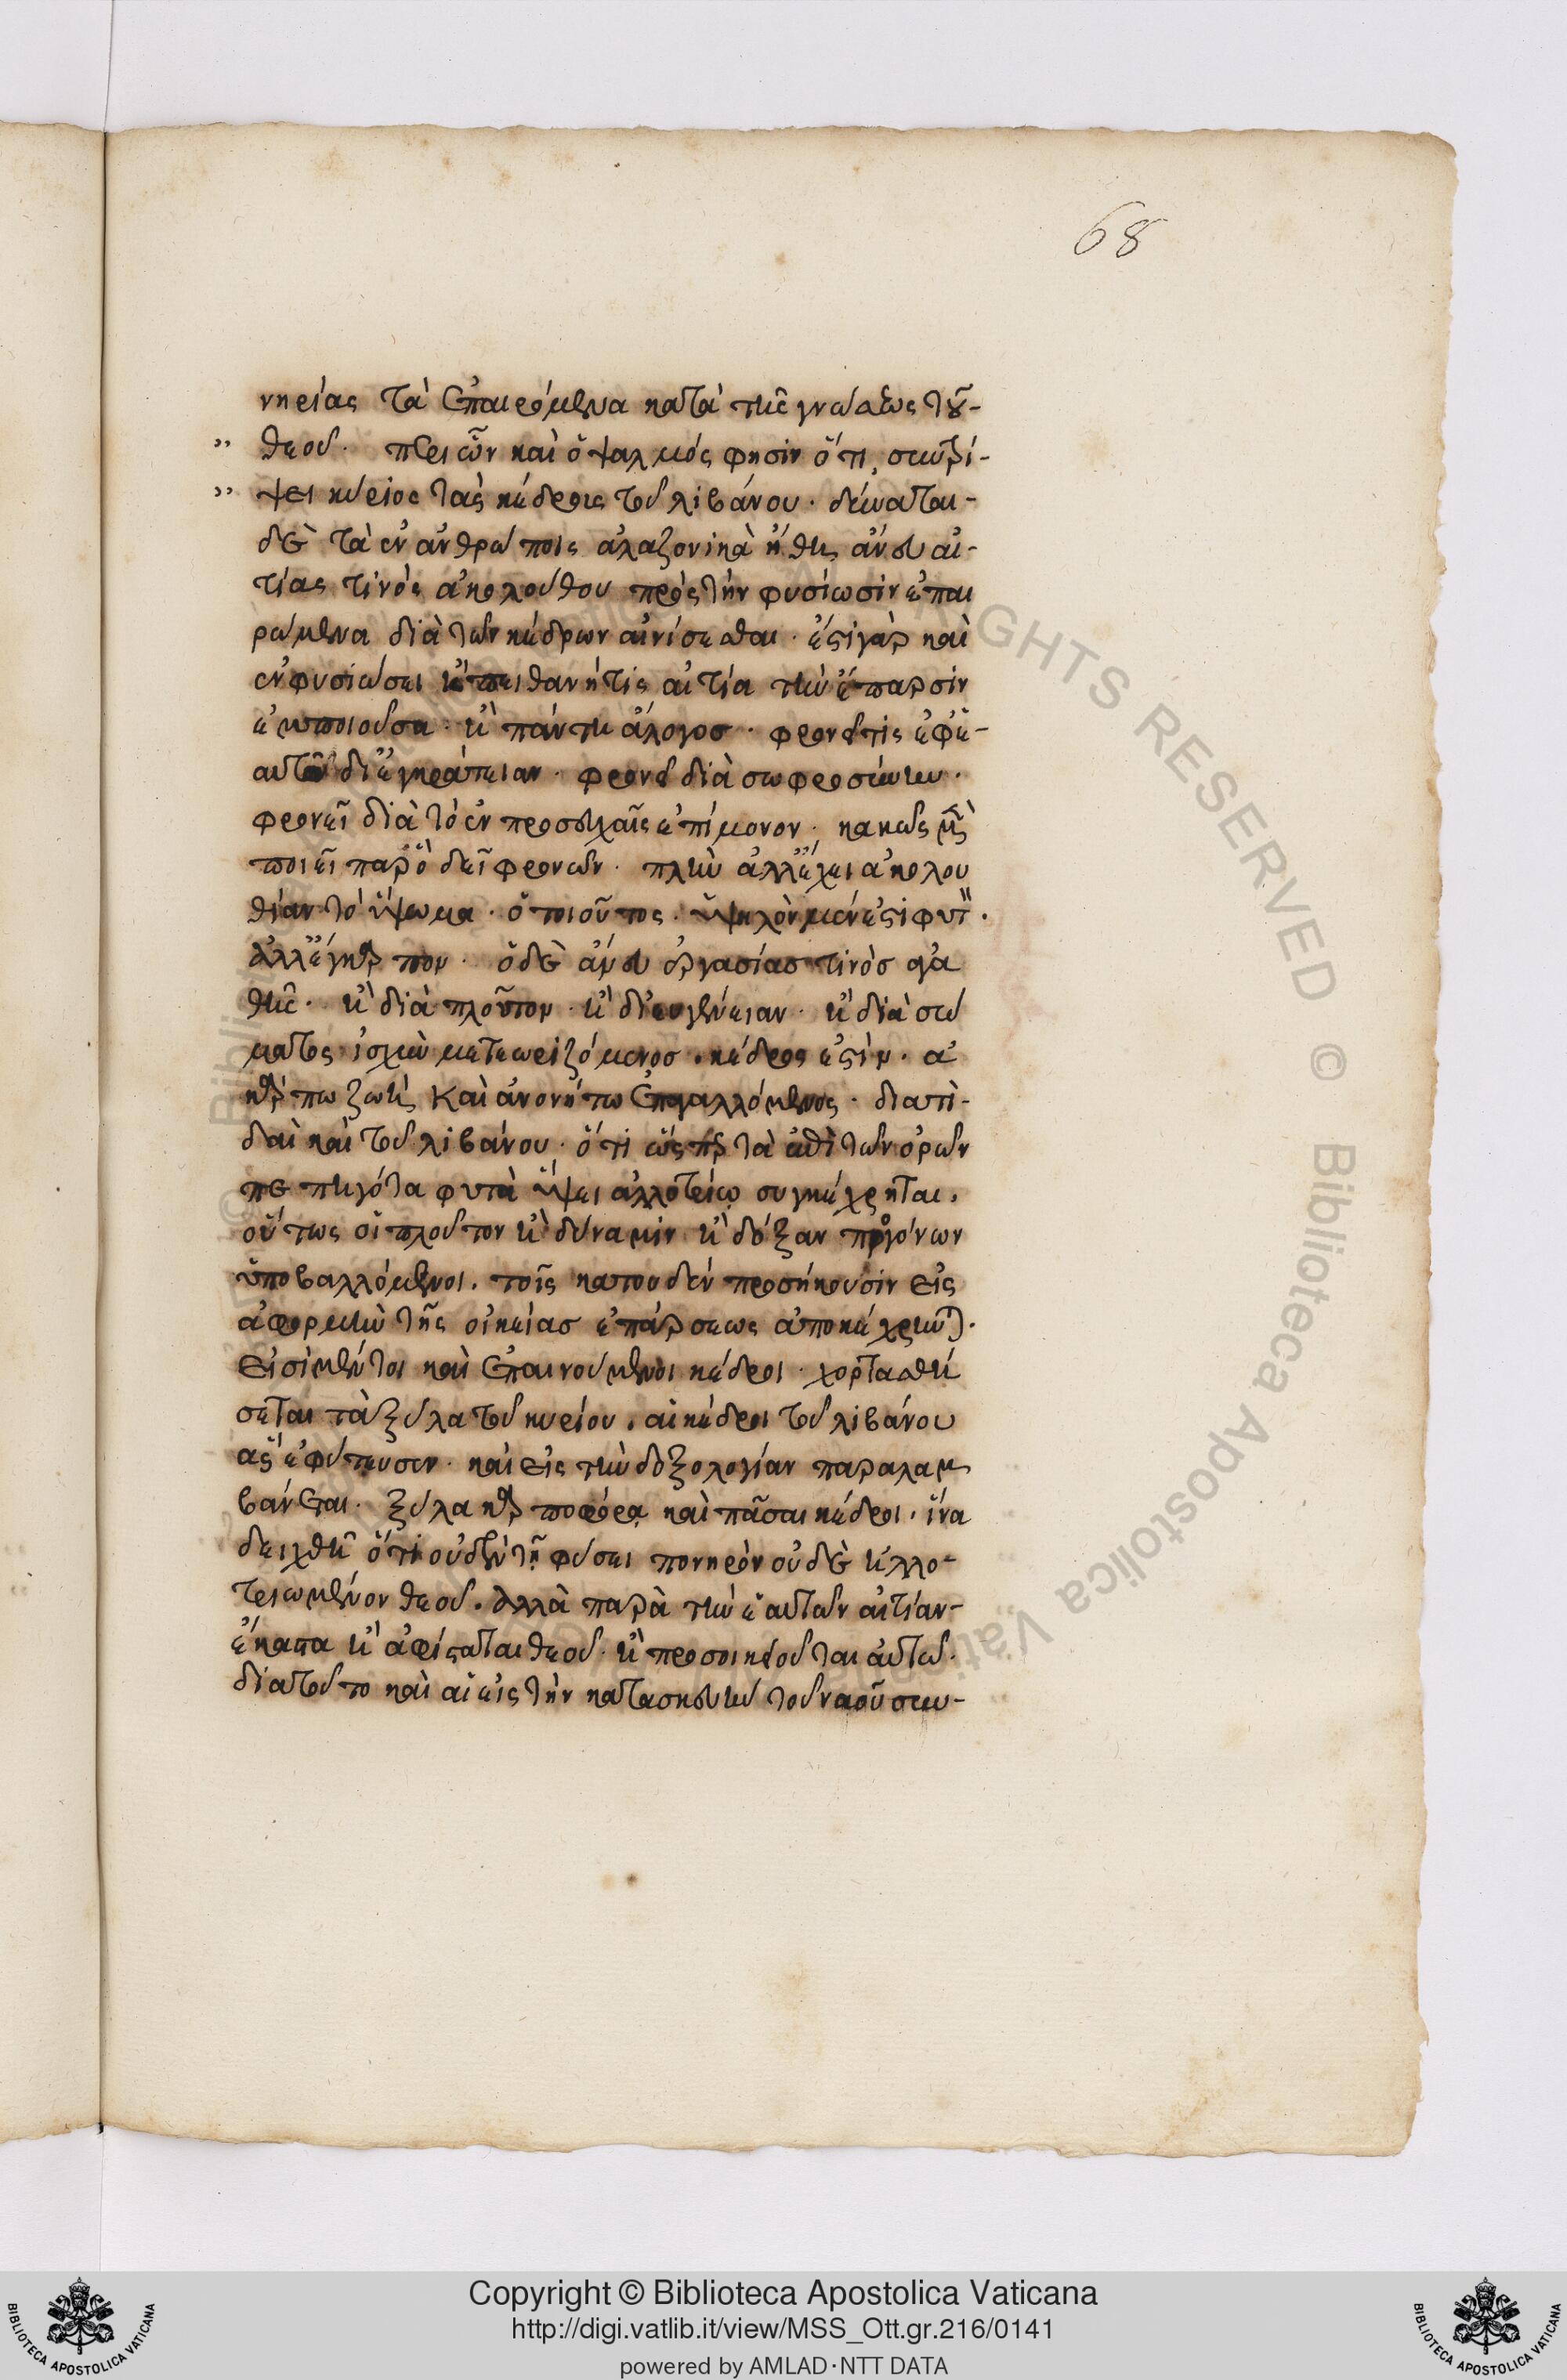 68
νηρίας τὰ ἐπαιρόμενα κατὰ τῆς γνώσεως τοῦ-
" θεοῦ. περὶ ὧν καὶ ὁ ψαλμός φησιν ὅτι, συντρί-
" ψει κύριος τὰς κέδρους τοῦ λιβάνου. δύναται-
δὲ τὰ ἐν ἀνθρώποις ἀλαζονικὰ ἤθη, ἄνευ αἰ-
τίας τινὸς ἀκολούθου πρὸς τὴν φυσίωσιν ἐπαι
ρόμενα διὰ τῶν κέδρων αἰνίσεσθαι. ἔστι γὰρ καὶ
ἐν φυσιώσει πιθανή τις αἰτία τὴν ἔπαρσιν
ἐμποιοῦσα. καὶ πάντη ἄλογοσ. φρονεῖ τις ἐφ' ἑ-
αυτῶ δι' ἐγκράτειαν. φρονεῖ διὰ σωφροσύνην.
φρονεῖ διὰ τὸ ἐν προσευχαῖς ἐπίμονον. κακῶς μὲν
ποιεῖ παρ' ὃ δεῖ φρονῶν. πλὴν ἀλλ' ἔχει ἀκολου
θίαν τὸ ὕψωμα. ὁ τοιοῦτος. ὑψηλὸν μέν ἐστι φυτὸν.
ἀλλ' ἔγκαρπον. ὁ δὲ ἄνευ ἐργασίασ τινὸσ ἀγα
θῆς. καὶ διὰ πλοῦτον. καὶ δι' εὐγένειαν. καὶ διὰ σώ
ματος ἰσχὺν μετεωριζόμενοσ. κέδρος ἐστὶν. ἀ
κάρπω ζωῆ καὶ ἀνονήτω ἐπαγαλλόμενος. διατὶ-
δαὶ καὶ τοῦ λιβάνου. ὅτι ὥσπερ τὰ ἐπὶ τῶν ὀρῶν
πεπηγότα φυτὰ ὕψει ἀλλοτρίω συγκέχρηται.
οὕτως οἱ πλοῦτον καὶ δύναμιν καὶ δόξαν προγόνων
ὑποβαλλόμενοι. τοῖς κατουδέν προσήκουσιν εἰς
ἀφορμὴν τῆς οἰκείασ ἐπάρσεως ἀποκέχρηνται.
εἰσὶ μέντοι καὶ ἐπαινούμενοι κέδροι. χορτασθή
σεται τὰ ξύλα τοῦ κυρίου. αἱ κέδροι τοῦ λιβάνου
ἃς ἐφύτευσεν. καὶ εἰς τὴν δοξολογίαν παραλαμ
βάνεται. ξύλα καρποφόρα καὶ πᾶσαι κέδροι. ἵνα
δειχθῆ ὅτι οὐδὲν τῆ φύσει πονηρὸν οὐδὲ ἠλλο-
τριωμένον θεοῦ. ἀλλὰ παρὰ τὴν ἑαυτῶν αἰτίαν-
ἕκαστα καὶ ἀφίσταται θεοῦ. καὶ προσοικειοῦται αὐτῶ.
διατοῦτο καὶ αἱ εἰς τὴν κατασκευὴν τοῦ ναοῦ συν-
Copyright © Biblioteca Apostolica Vaticana
http://digi.vatlib.it/view/MSS_Ott.gr.216/0141
powered by AMLAD·NTT DATA
BIBLIOTECA APOSTOLICA VATICANA
BIBLIOTECA APOSTOLICA VATICANA